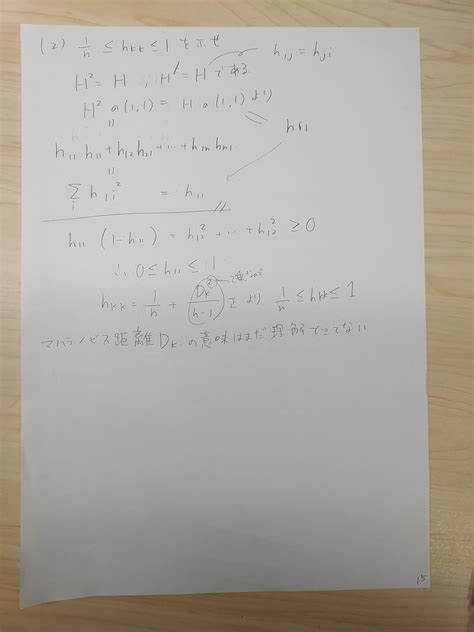 (2) 1/n ≤ hkk ≤ 1 を示せ
H² = H , H' = H である hij = hji
H² の(1,1) = H の(1,1) より
h11 h11 + h12 h21 + … + h1n hn1
Σi h1i² = h11
h11 (1-h11) = h12² + … + h12² ≥ 0
∴ 0 ≤ h11 ≤ 1
hkk = 1/n + Dk²/(n-1) 正 より 1/n ≤ hkk ≤ 1
マハラノビス距離 Dk の意味はまだ理解できてない
15